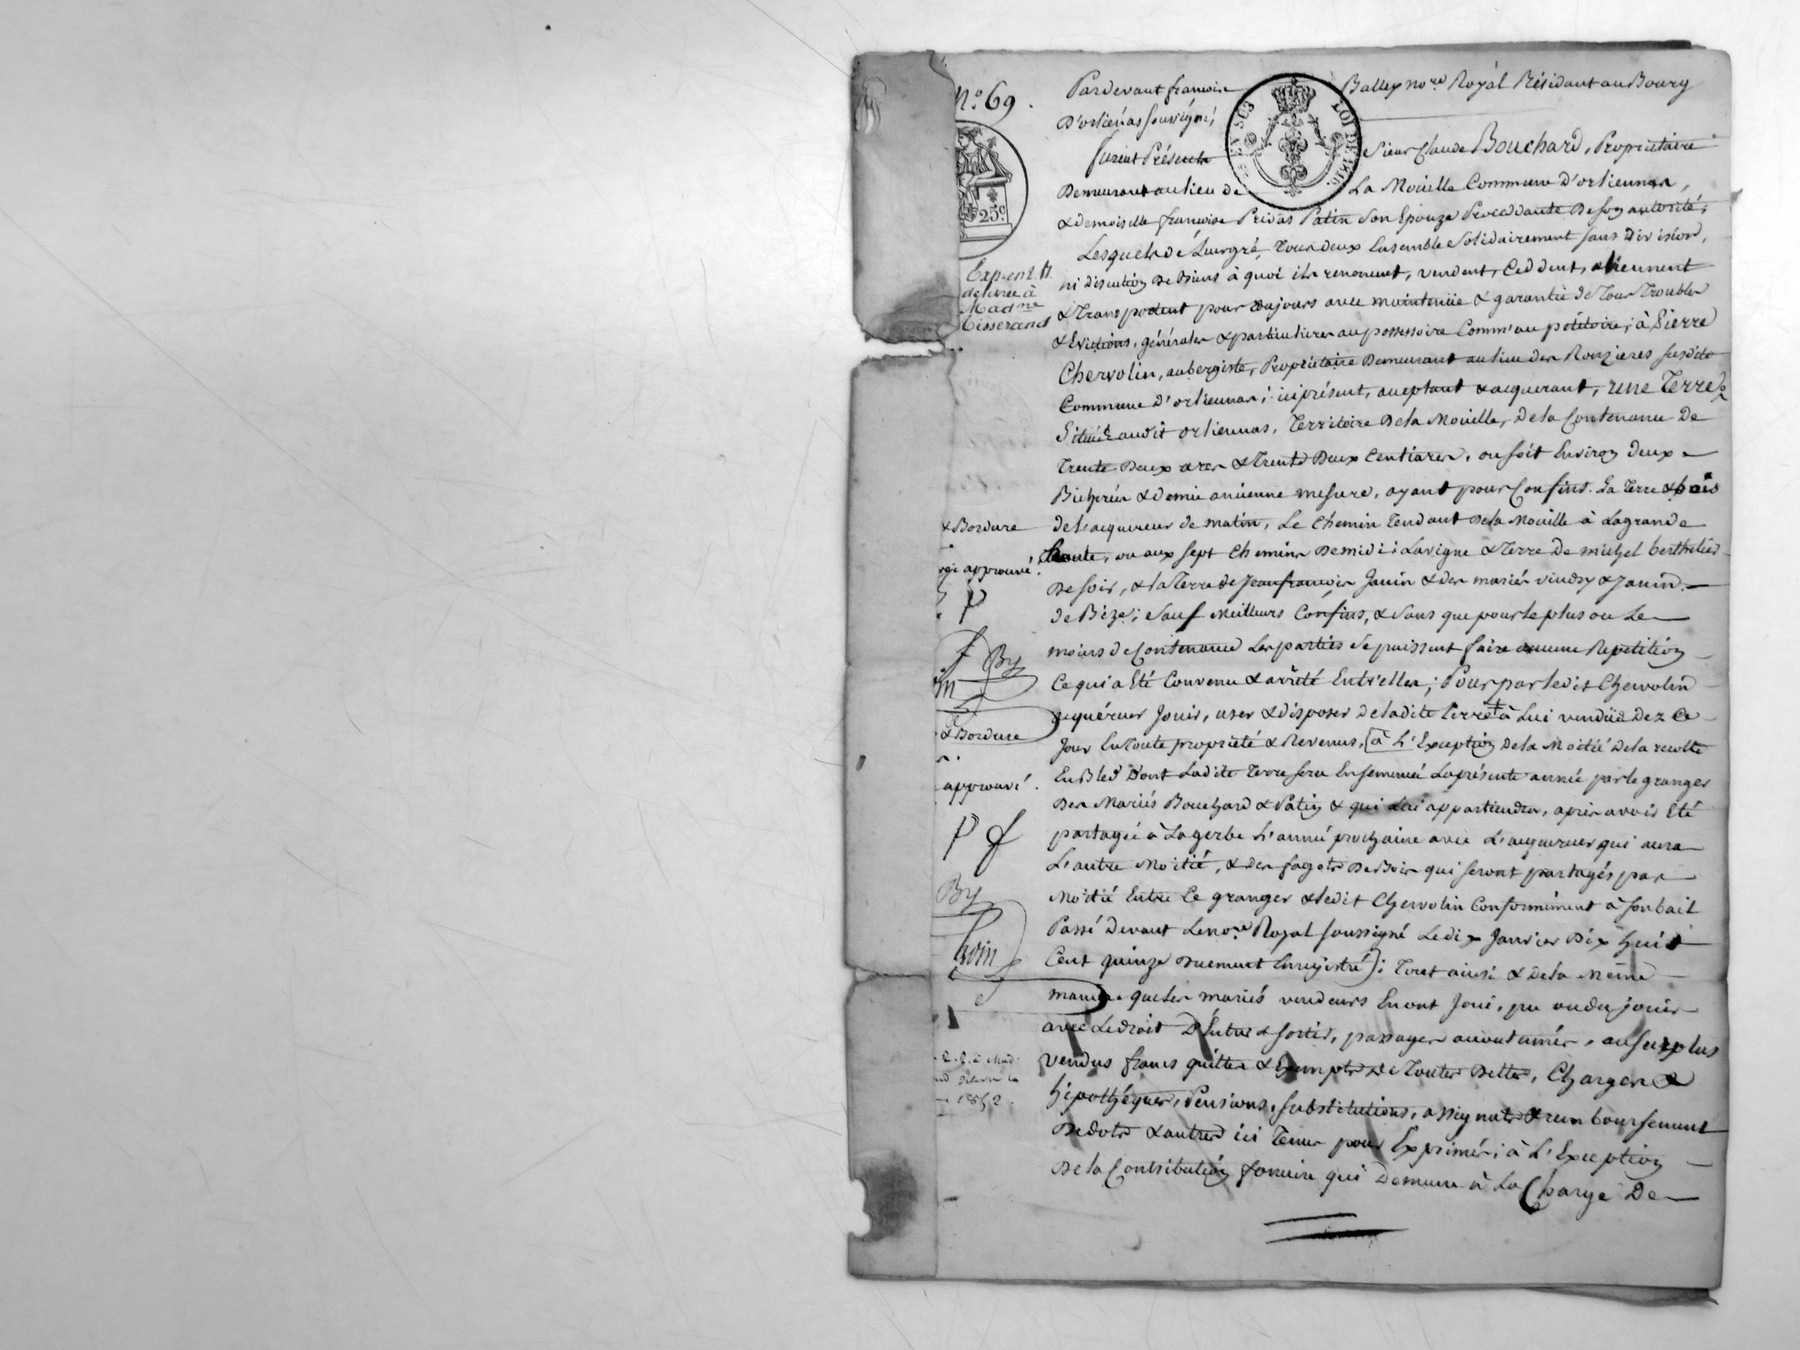 N.° 69.
Pardevant françois Balley no.re Royal Résidant au Bourg
D'orliénas soussigné;
furent Présents Sieur Claude Bouchard, Propriétaire
Demeurant au lieu de La Mouille Commune d'orliennas,
& demoiselle françoise Privas Patin son Epouze Proceddante de son autorité;
Lesquels de Leur gré, tous deux Ensemble Solidairement sans Division,
ni Discution De Biens à quoi ils renoncent, vendent, Ceddent, alliennent
& Transportent pour toujours avec maintenüe & garantie de Tour Troubles
& Evictions, générales & particulieres au possessoire Comm'au pétitoire; à Pierre
Chervolin, aubergiste, Propriétaire Demeurant au lieu des Ronzieres susdite
Commune D'orliennas; ici présent, acceptant & acquerant, une Terre
Située audit orliennas, Territoire De la Mouille, De la Contenance De
Trente Deux ares & Trente Deux Centiares, ou soit Environ deux
Bicherées & demie ancienne mesure, ayant pour Confins. La Terre & bois
de l'acquereur de matin, Le Chemin Tendant De la Mouille à Lagrande
, ou aux sept Chemins De midi; La vigne & Terre De michel berthelier
De soir, & la Terre de Jean françois Janin & des mariés vindry & Janin
de Bize; Sauf Meilleurs Confins, & sans que pour le plus ou Le
moins de Contenance Les parties se puissent faire aucune Repetition
Ce qui a Eté Convenu & arrêté Entr'elles; Pour par ledit Chervolin
acquéreur Jouir, user & disposer de ladite Terre + à Lui vendüe Dez Ce
Jour En Toute propriété & Revenus, (à L'Exception De la Moitié De la recolte
En Bled Dont Ladite Terre sera Ensemencée La présente année par le granger
Des Mariés Bouchard & Patin & qui Lui appartiendra, après avoir Eté
partagée à La gerbe L'année prochaine avec L'acquereur qui aura
L'autre Moitié, & des fagots De Bois qui seront partagés par
Moitié Entre Le granger & ledit Chervolin Conformément à son bail
Passé Devant Le no.re Royal soussigné Le dix Janvier Dix huit
Cent quinze Duement Enregistré); Tout ainsi & De la Même
maniere que les mariés vendeurs En ont Joui, pu ou du jouir
avec Le droit D'Entrer & sortir, passages accoutumés, au surplus
vendus francs quittes & Exempts De Toutes Dettes, Charges &
hipothéques, Pensions, substitutions, assignats & remboursement
De dots & autres ici Tenus pour Exprimés; à L'Exception
De la Contribution fonciere qui Demeure à La Charge De
LOI DE 1816.
25c
delivrée à
Mad.me
Tisserand
& Bordure
approuvé.
P
By
& Bordure
approuvé.
P f
By
1852.